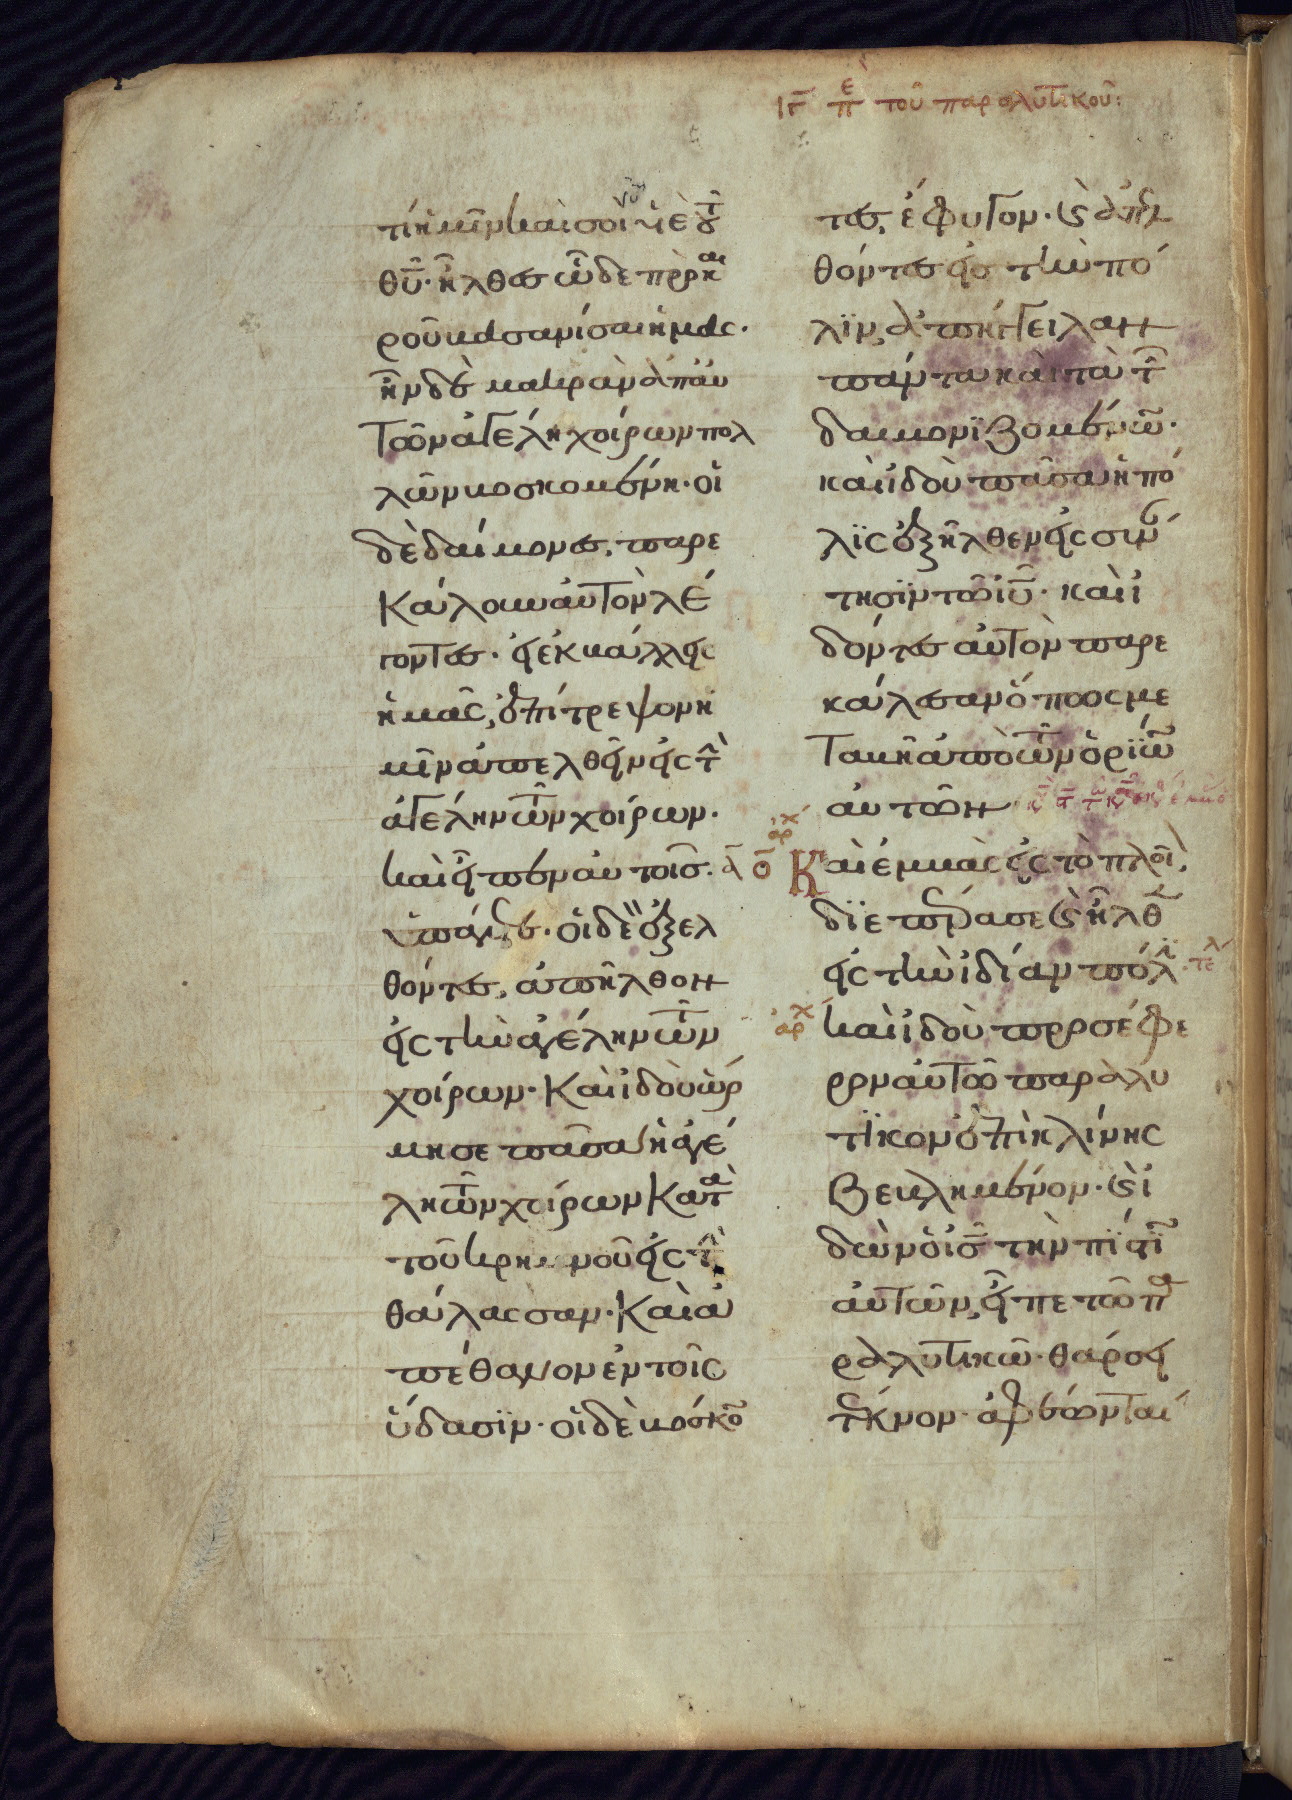 ΙΓ πε τοῦ παραλυτικοῦ:
τί ἡμῖν καὶ σοὶ ἰυ υἱὲ τοῦ
θῦ· ἦλθες ὧδε πρὸ και
ροῦ βασανίσαι ἡμᾶς·
ἦν δὲ μακρὰν ἀπ' αυ
τῶν ἀγέλη χοίρων πολ
λῶν βοσκομένη· οἱ
δὲ δαίμονες, παρε
κάλουν αὐτὸν λέ
γοντες· εἰ ἐκβάλλεις
ἡμᾶς, ἐπίτρεψον ἡ
μῖν ἀπελθεῖν εἰς τὴν
ἀγέλην τῶν χοίρων·
καὶ εἶπεν αὐτοῖς·
ὑπάγετε· οἱ δὲ ἐξελ
θόντες, ἀπῆλθον
εἰς τὴν ἀγέλην τῶν
χοίρων· καὶ ἰδοὺ ὥρ
μησε πᾶσα ἡ ἀγέ
λη τῶν χοίρων κατὰ
τοῦ κρημνοῦ εἰς τὴν
θάλασσαν· καὶ ἀ
πέθανον ἐν τοῖς
ὕδασϊν· οἱ δὲ βόσκον
τες, ἔφυγον· καὶ ἀπελ
θόντες εἰς τὴν πό
λϊν, ἀπήγγειλαν
πάντα καὶ τὰ τῶν
δαιμονϊζομένων·
καὶ ἰδοὺ πᾶσα ἡ πό
λϊς ἐξῆλθεν εἰς συν
τησϊν τῶ ἰῦ· καὶ ἰ
δόντες αὐτὸν παρε
κάλεσαν ὅπως με
ταβῆ ἀπὸ τῶν ὁρϊων
αὐτῶν
ἀρχ Καὶ ἐμβὰς εἰς τὸ πλοῖ,
δϊεπέρασε καὶ ἦλθεν
εἰς τὴν ἰδίαν πόλϊν· τελ
ἀρχ καὶ ἰδοὺ προσέφε
ρον αὐτῶ παραλυ
τϊκον ἐπὶ κλίνης
βεβλημένον· καὶ ἰ
δὼν ὁ ισ τὴν πίστϊν
αὐτῶν, εἶπε τῶ πα
ραλυτικῶ· θάρσει
τέκνον· ἀφέωνται